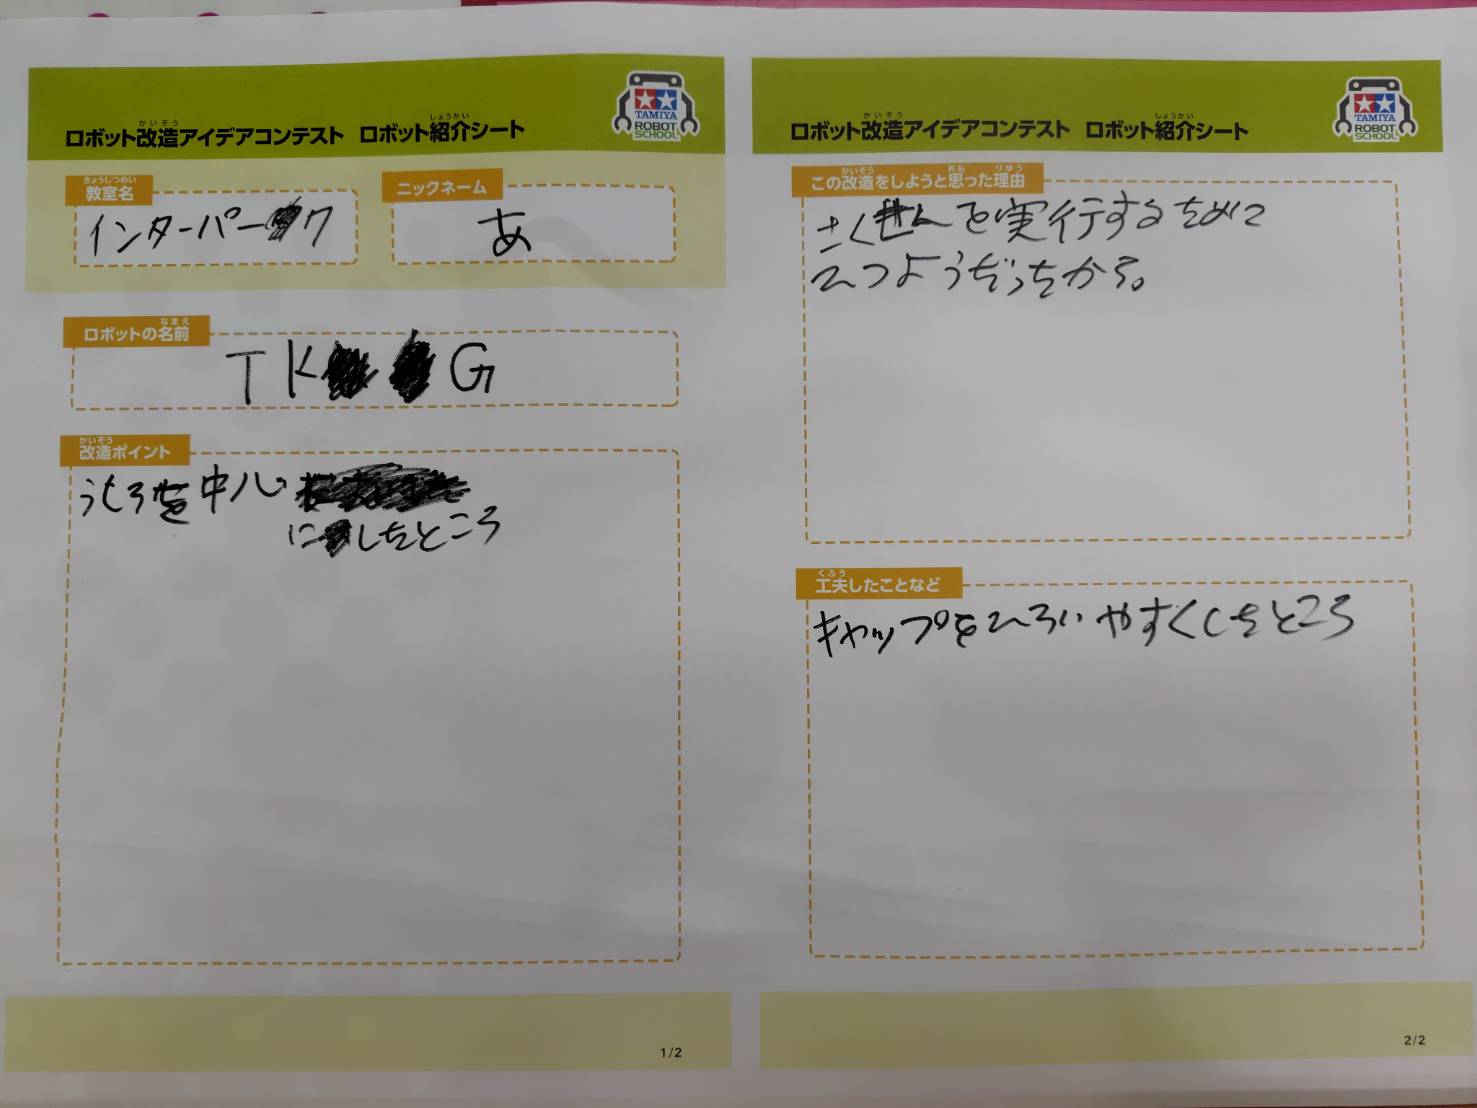 ロボット改造アイデアコンテスト ロボット紹介シート
かいぞう しょうかい
TAMIYA
ROBOT
SCHOOL
きょうしつめい
教室名
インターパーク
ニックネーム
あ
なまえ
ロボットの名前
TK G
かいぞう
改造ポイント
うしろを中心
にしたところ
1/2
ロボット改造アイデアコンテスト ロボット紹介シート
かいぞう しょうかい
TAMIYA
ROBOT
SCHOOL
かいぞう おも りゆう
この改造をしようと思った理由
さくせんを実行するために
ひつようだったから。
くふう
工夫したことなど
キャップをひろいやすくしたところ
2/2